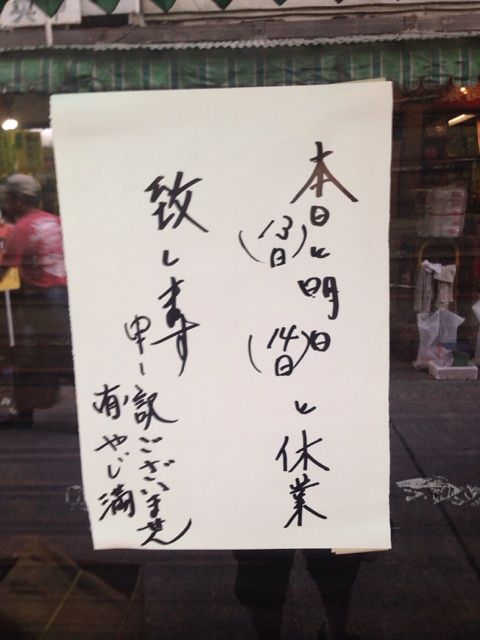 本日と明日と休業
(13日)
(14日)
致します
申し訳ございません
有)やじ満